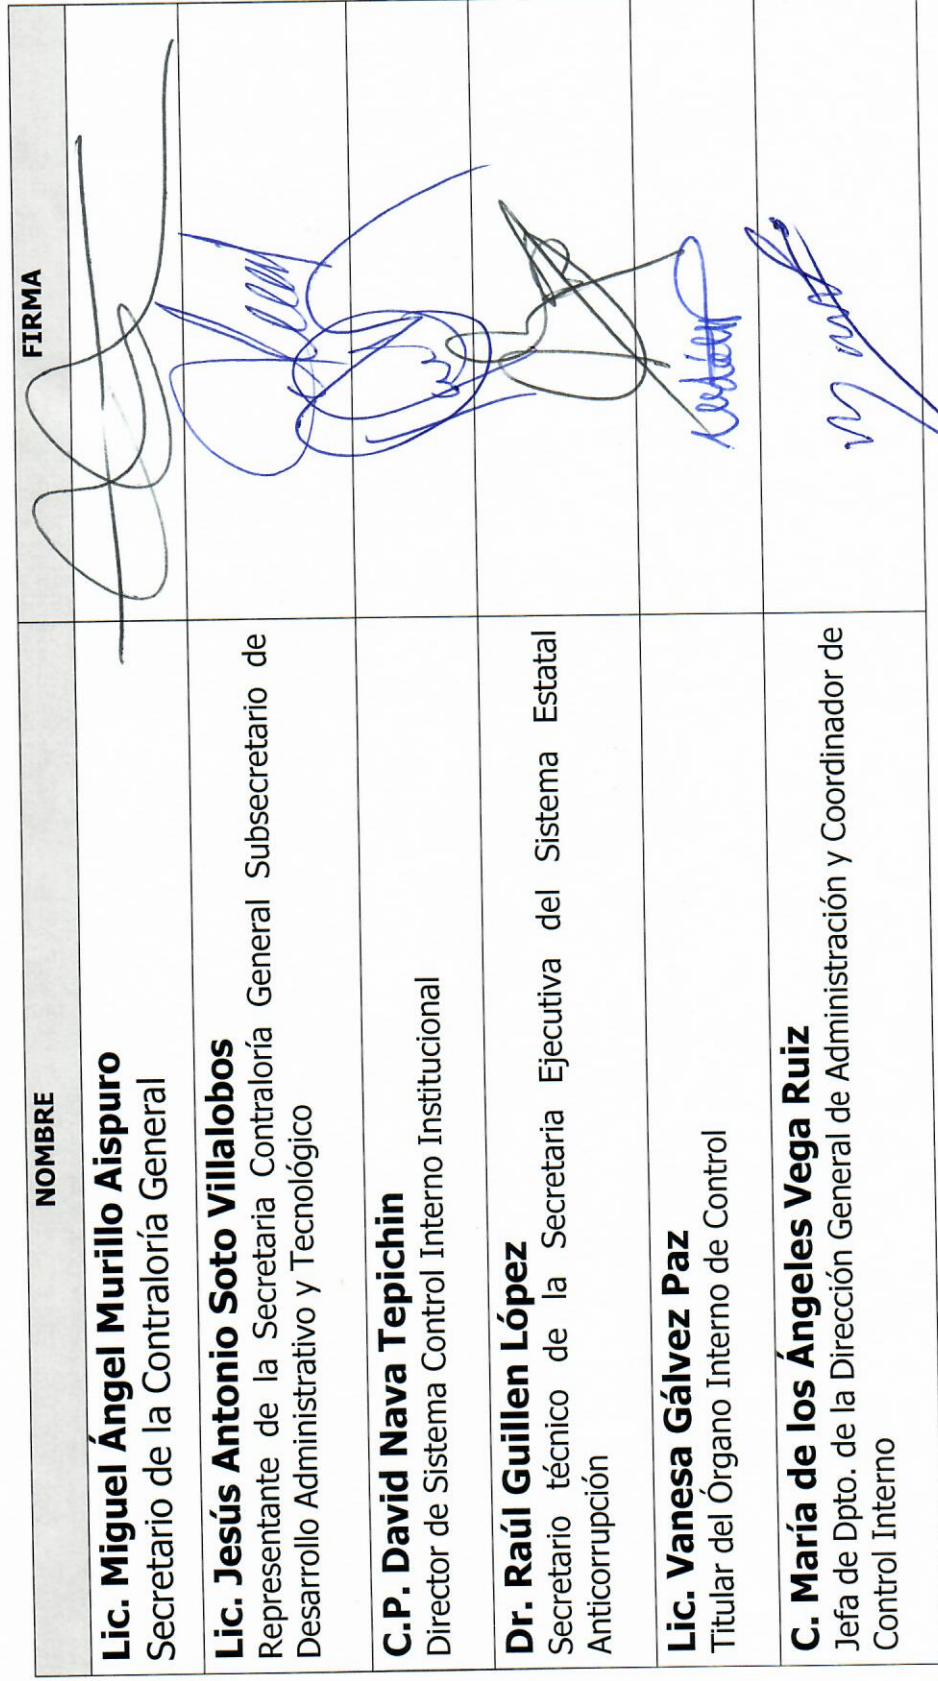 NOMBRE
FIRMA
Lic. Miguel Ángel Murillo Aispuro
Secretario de la Contraloría General
Lic. Jesús Antonio Soto Villalobos
Representante de la Secretaria Contraloría General Subsecretario de
Desarrollo Administrativo y Tecnológico
C.P. David Nava Tepichin
Director de Sistema Control Interno Institucional
Dr. Raúl Guillen López
Secretario técnico de la Secretaria Ejecutiva del Sistema Estatal
Anticorrupción
Lic. Vanesa Gálvez Paz
Titular del Órgano Interno de Control
C. María de los Ángeles Vega Ruiz
Jefa de Dpto. de la Dirección General de Administración y Coordinador de
Control Interno